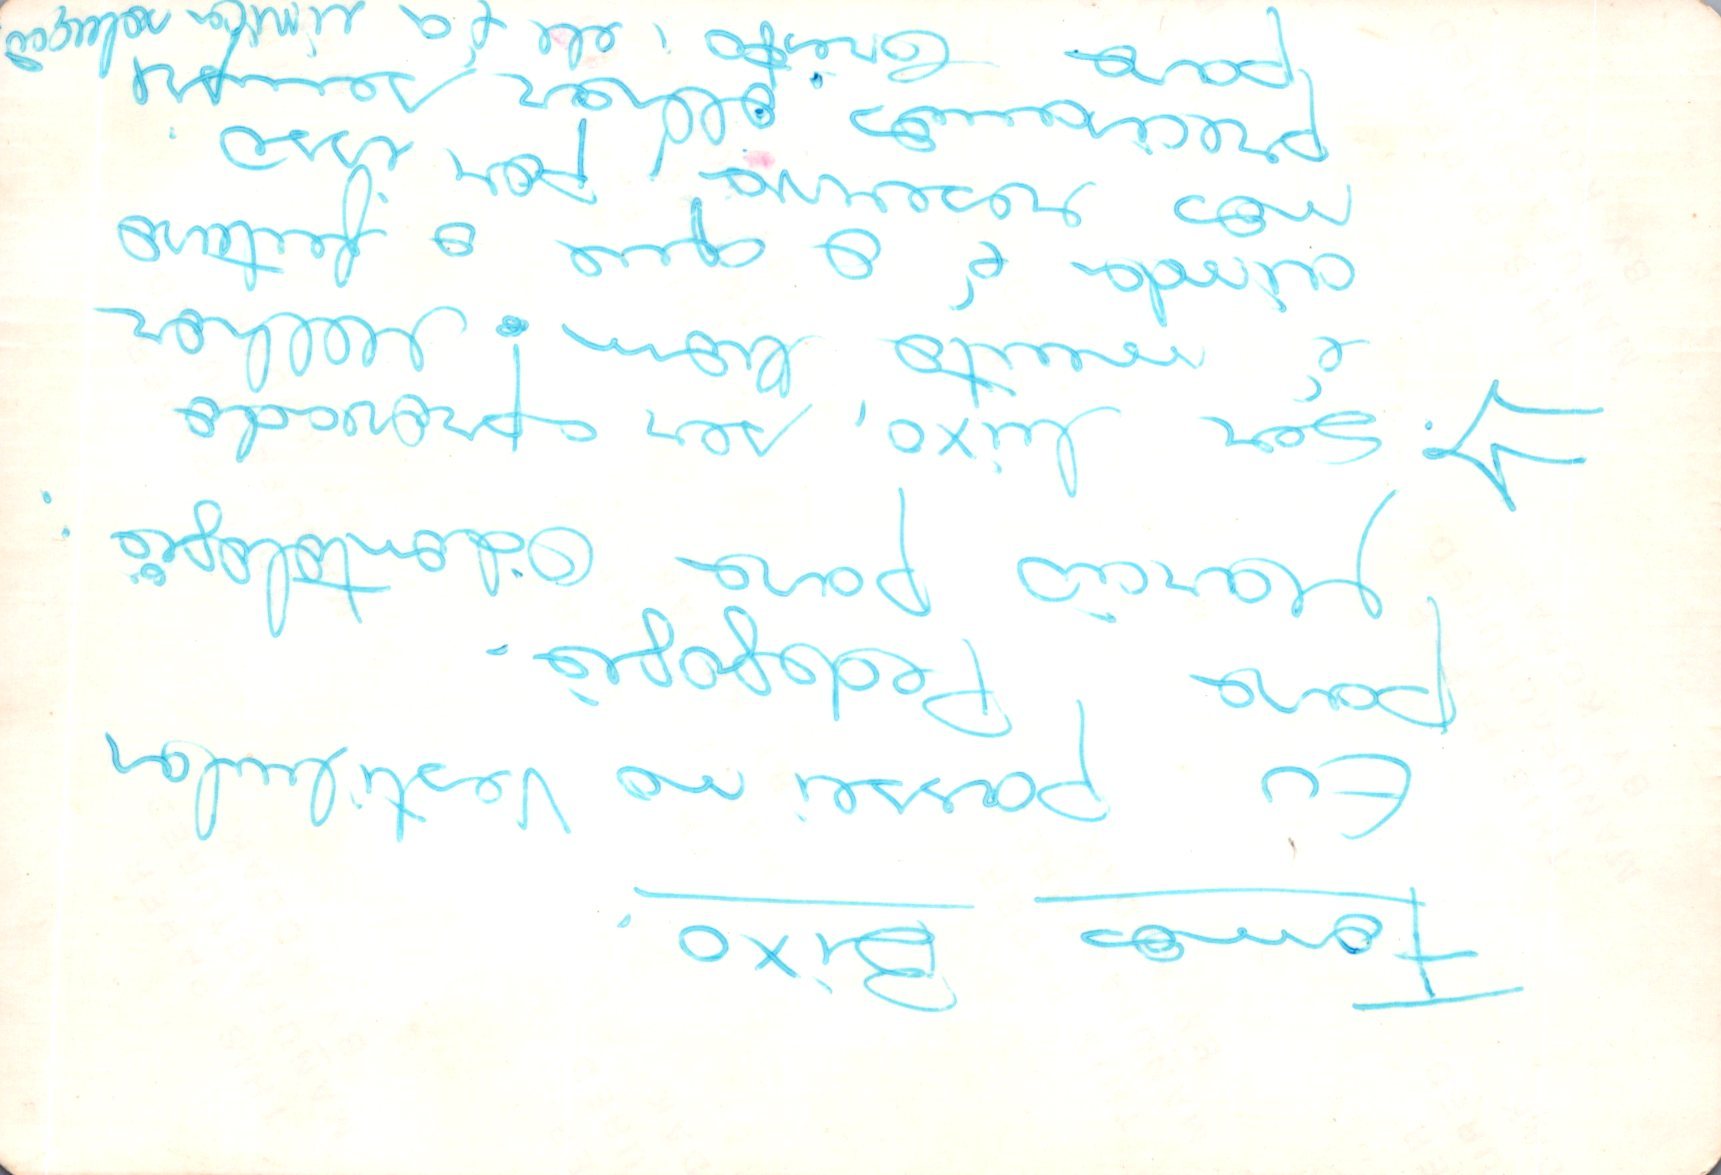 Fomos Bixo.
Eu passei no Vestibular
para Pedagogia.
Márcio para Odontologia.
Ser bixo, ser aprovado
é muito bom. Melhor
ainda é o que o futuro
nos reserva, por isso
precisamos olhar sempre
para Cristo, ele é a única solução